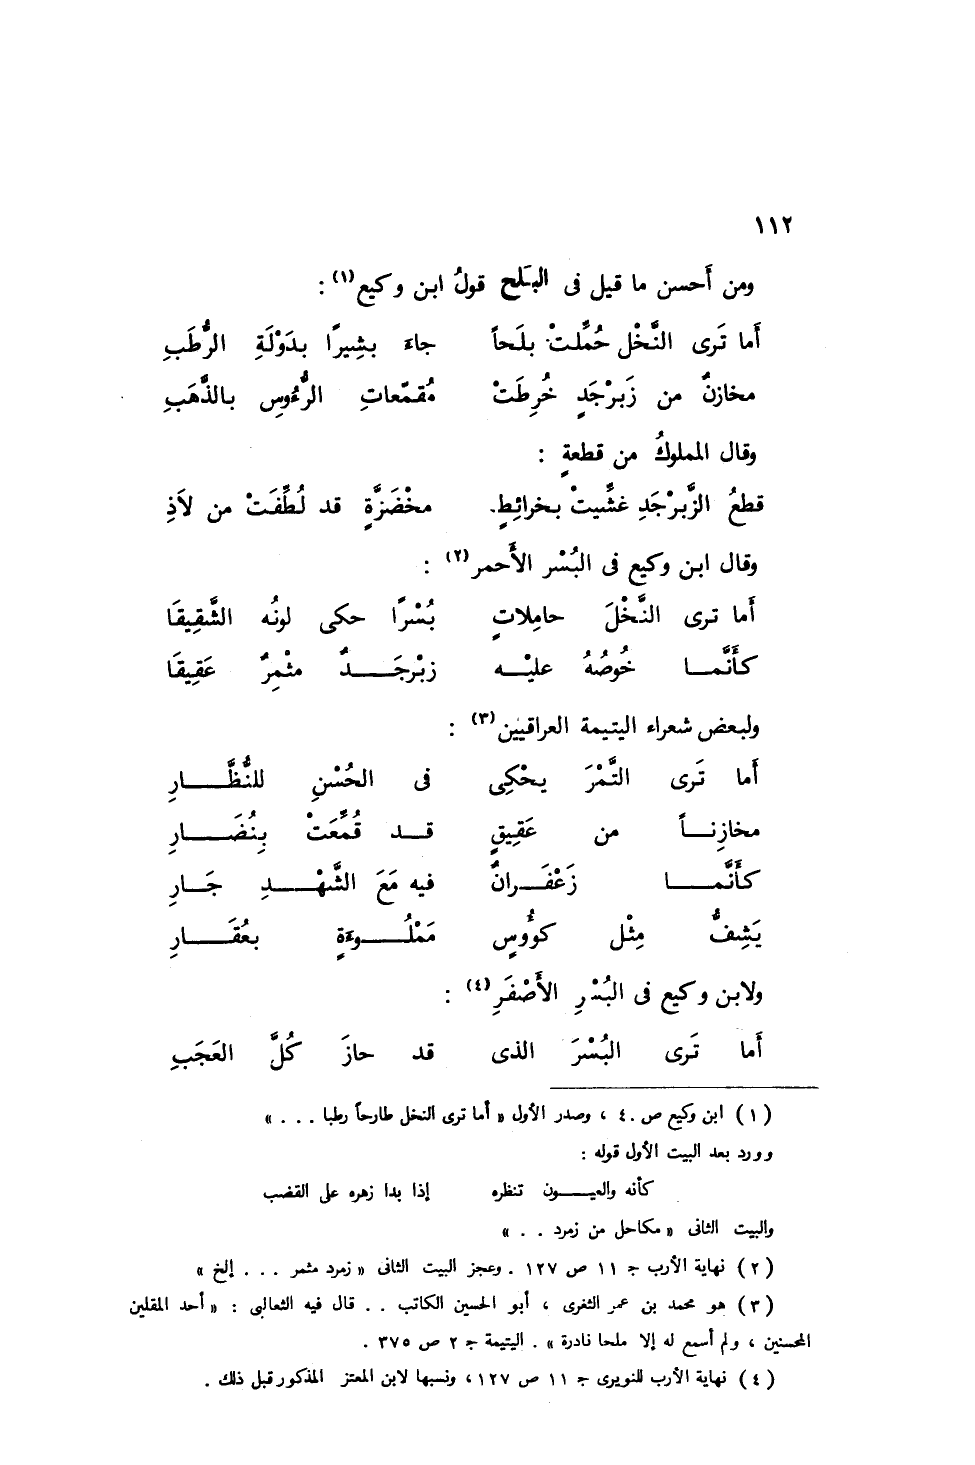 ١١٢
ومن أَحسن ما قيل فى البَلَح قولُ ابن وكيع(١) :
أَما تَرى النَّخْل حُمِّلتْ بلَحاً جاءَ بشِيرًا بدَوْلَةِ الرُّطَبِ
مخازنٌ من زَبرْجَدٍ خُرِطَتْ مُقمّعاتِ الرُّءُوسِ بالذَّهَبِ
وقال المملوكُ من قطعةٍ :
قطعُ الزَّبرْجَدِ غشِّيتْ بخرائطٍ. مخْضَرَّةٍ قد لُطِّفَتْ من لاَذِ
وقال ابن وكيع فى البُسْر الأَحمر(٢) :
أَما ترى النَّخْلَ حامِلاتٍ بُسْرًا حكى لونُه الشَّقِيقَا
كأَنَّما خُوصُهُ عليْه زبْرجَدٌ مثْمِرٌ عَقِيقَا
ولبعض شعراء اليتيمة العراقيين(٣) :
أَما تَرى التَّمْرَ يحْكِى فى الحُسْنِ للنُّظَّارِ
مخازِناً من عَقِيقٍ قد قُمِّعَتْ بِنُضَارِ
كأَنَّما زَعْفَرانٌ فيه مَعَ الشَّهْدِ جَارِ
يَشِفُّ مِثْل كؤُوسٍ مَمْلُوءَةٍ بعُقَارِ
ولابن وكيع فى البُسْرِ الأَصْفَرِ(٤) :
أَما تَرى البُسْرَ الذى قد حازَ كُلَّ العَجَبِ
(١) ابن وكيع ص ٤٠ ، وصدر الأول « أما ترى النخل طارحاً رطبا . . . »
وورد بعد البيت الأول قوله :
كأنه والعيون تنظره إذا بدا زهره على القضب
والبيت الثانى « مكاحل من زمرد . . »
(٢) نهاية الأرب ج ١١ ص ١٢٧ . وعجز البيت الثانى « زمرد مثمر . . . إلخ »
(٣) هو محمد بن عمر الثغرى ، أبو الحسين الكاتب . . قال فيه الثعالبى : « أحد المقلين
المحسنين ، ولم أسمع له إلا ملحا نادرة » . اليتيمة ج ٢ ص ٣٧٥ .
(٤) نهاية الأرب للنويرى ج ١١ ص ١٢٧ ، ونسبها لابن المعتز المذكور قبل ذلك .